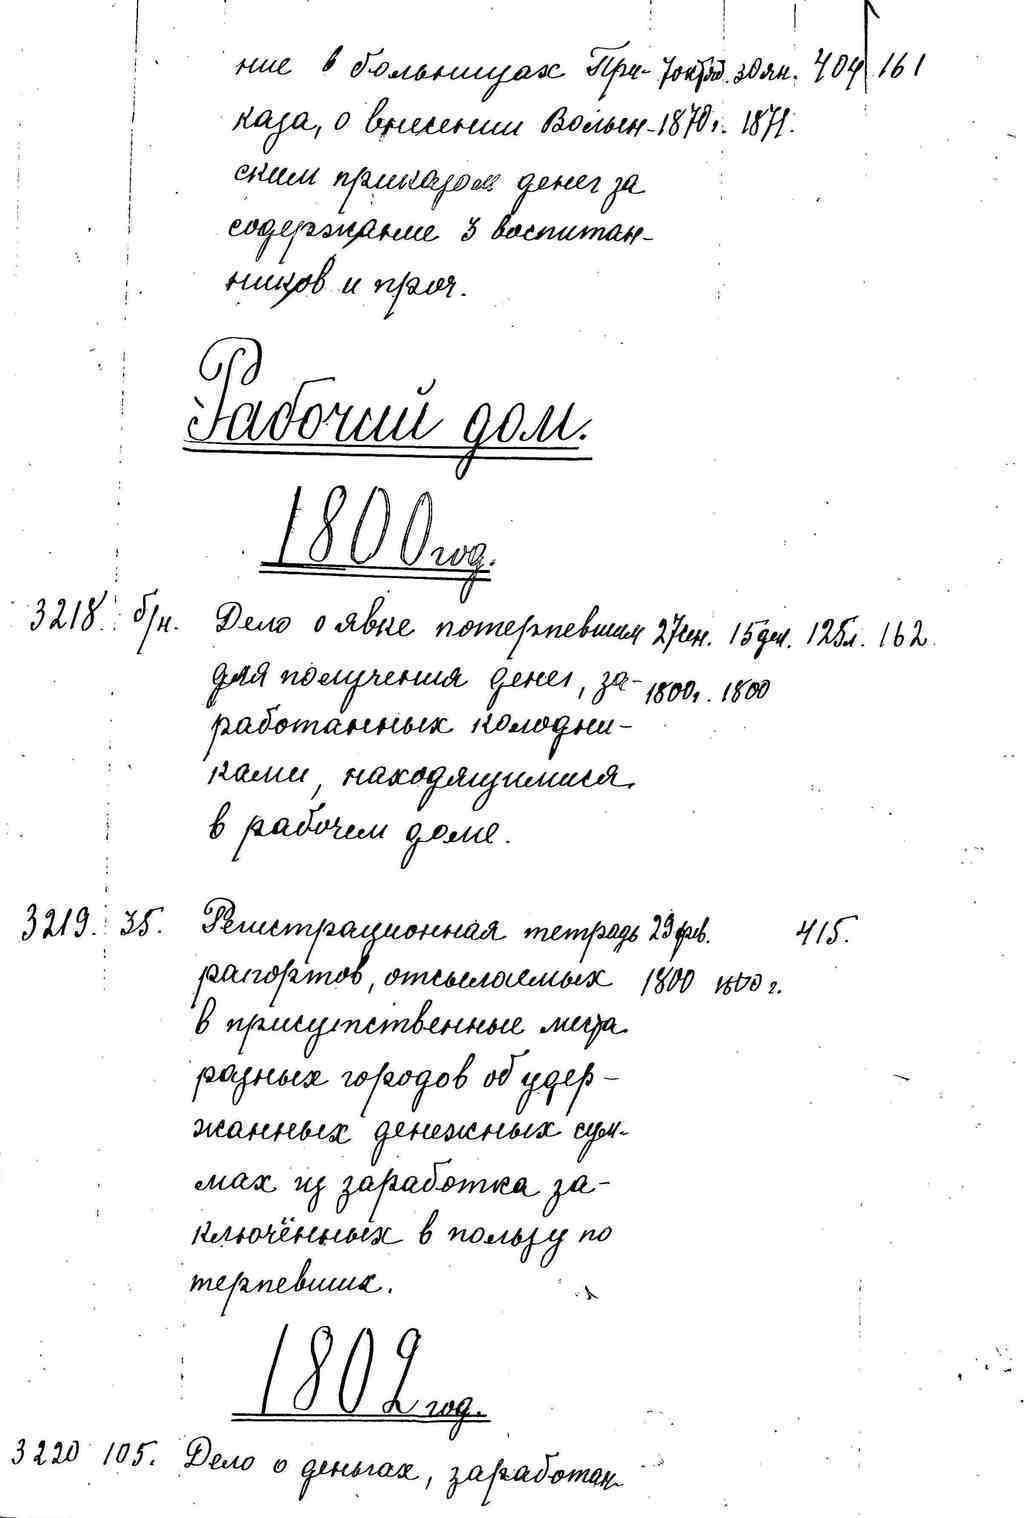 ние в больницах При- 7 октяб. 30 ян. 404 161
каза, о внесении Волын- 1870 г. 1871.
ским приказом денег за
содержание 3 воспитан-
ников и проч.
Рабочий дом.
1800 год.
3218. б/н. Дело о явке потерпевшим 27 сен. 15 дек. 125 л. 162.
для получения денег, за- 1800 г. 1800
работанных колодни-
ками, находящимися
в рабочем доме.
3219. 35. Регистрационная тетрадь 29 фев. 415.
рапортов, отсылаемых 1800 1800 г.
в присутственные места
разных городов об удер-
жанных денежных сум-
мах из заработка за-
ключённых в пользу по
терпевших.
1802 год.
3220 105. Дело о деньгах, заработан